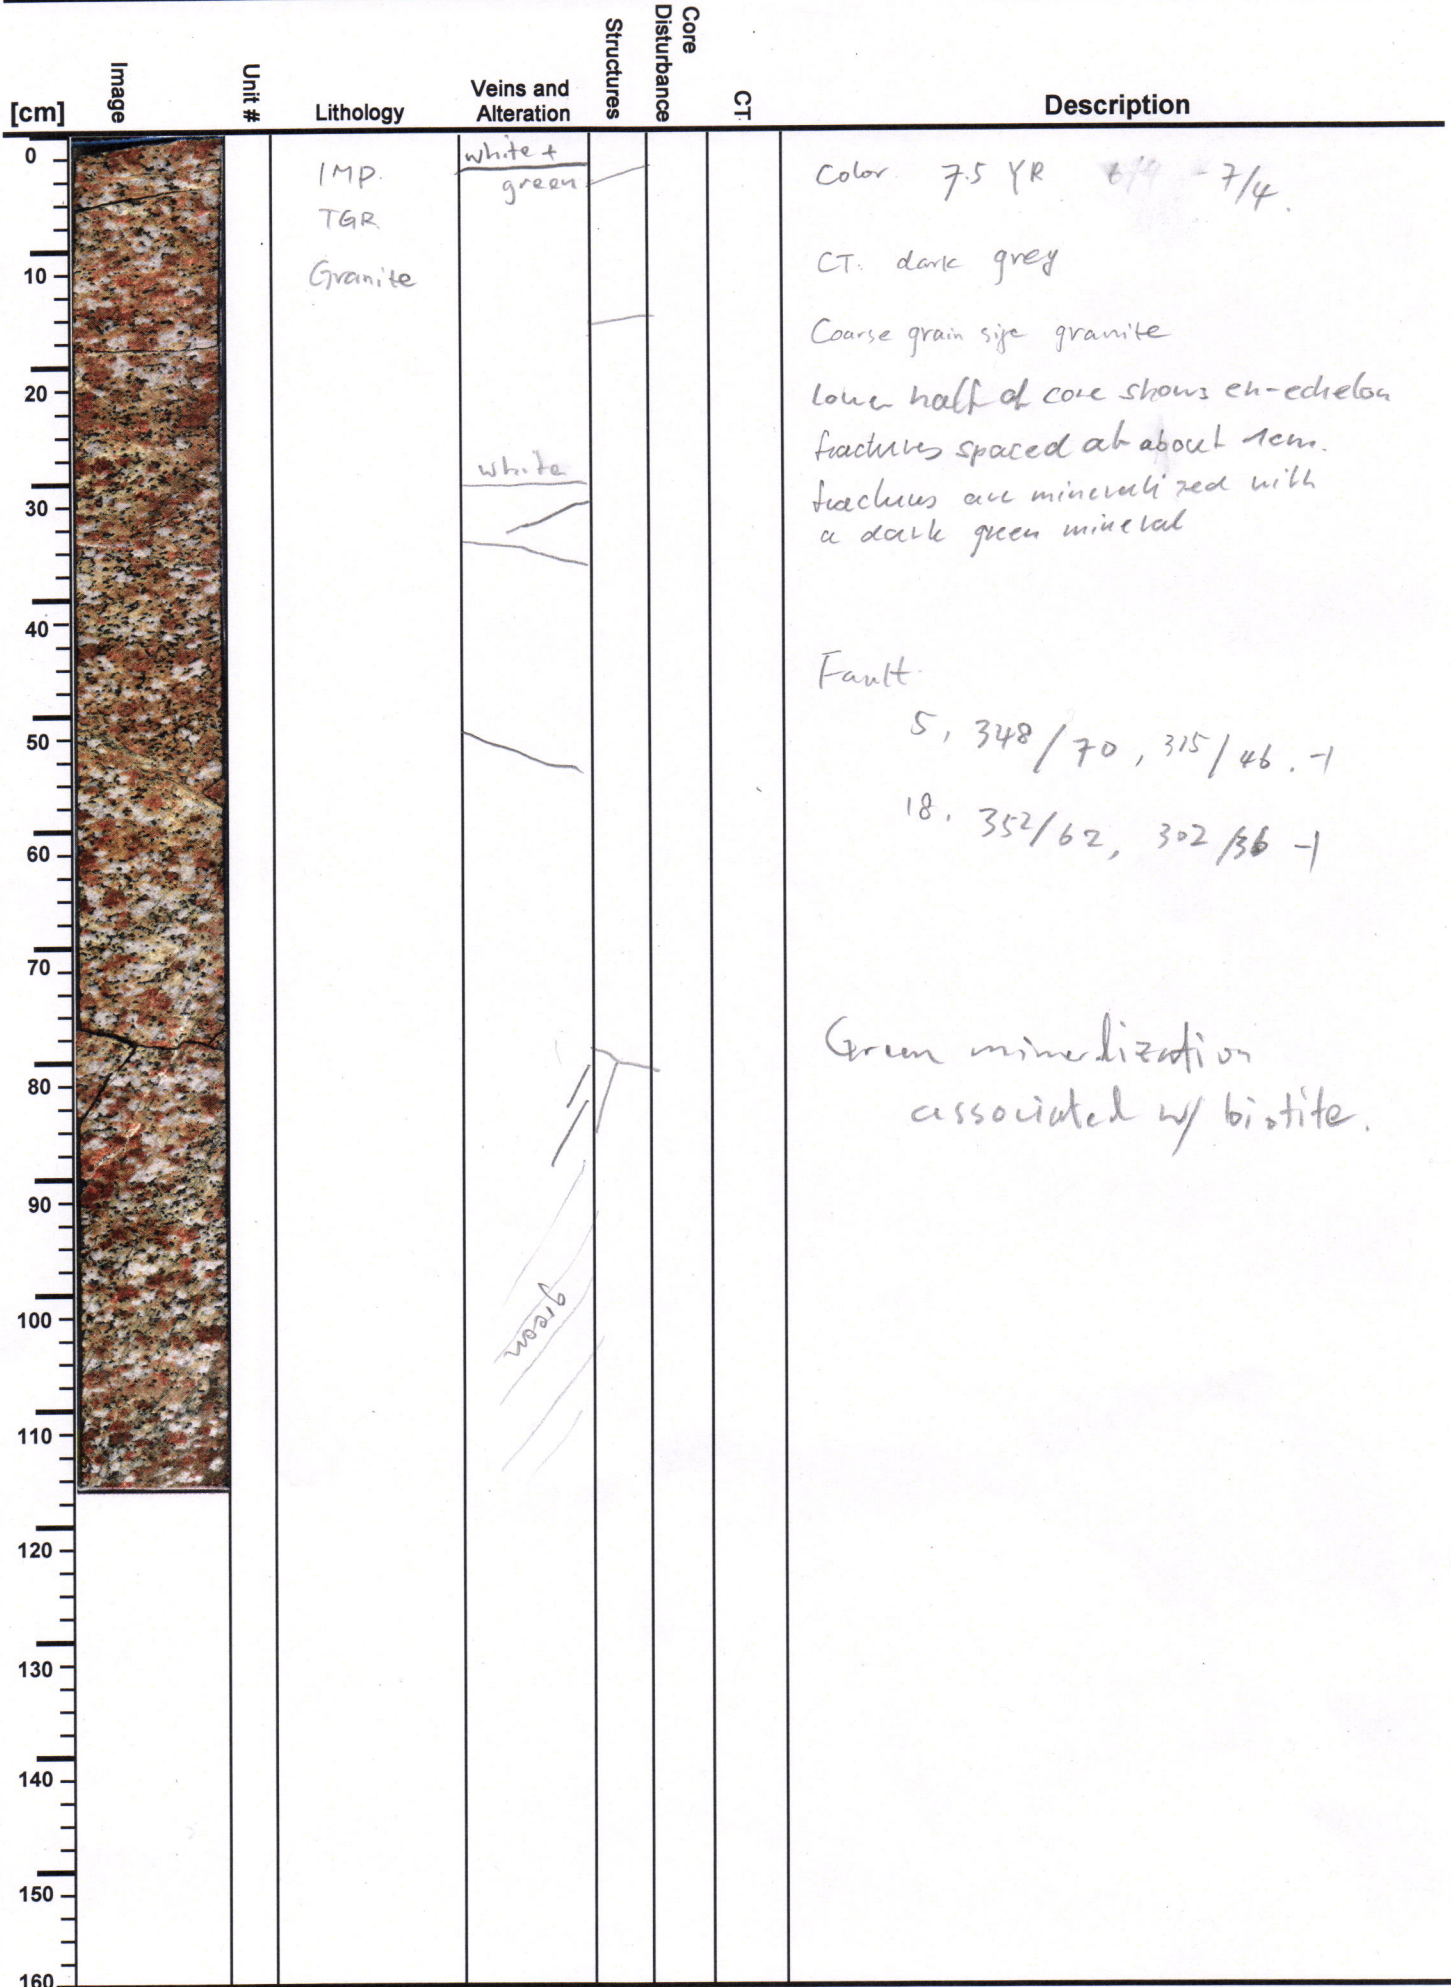 [cm]
Image
Unit #
Lithology
Veins and
Alteration
Structures
Core
Disturbance
CT
Description
0
10
20
30
40
50
60
70
80
90
100
110
120
130
140
150
160
IMP.
TGR
Granite
white +
green
white
green
Color. 7.5 YR - 7/4.
CT: dark grey
Coarse grain size granite
lower half of core shows en-echelon
fractures spaced at about 1cm.
fractures are mineralized with
a dark green mineral
Fault
5, 348/70, 315/46. -1
18. 352/62, 302/36 -1
Green minerlization
associated w/ biotite.